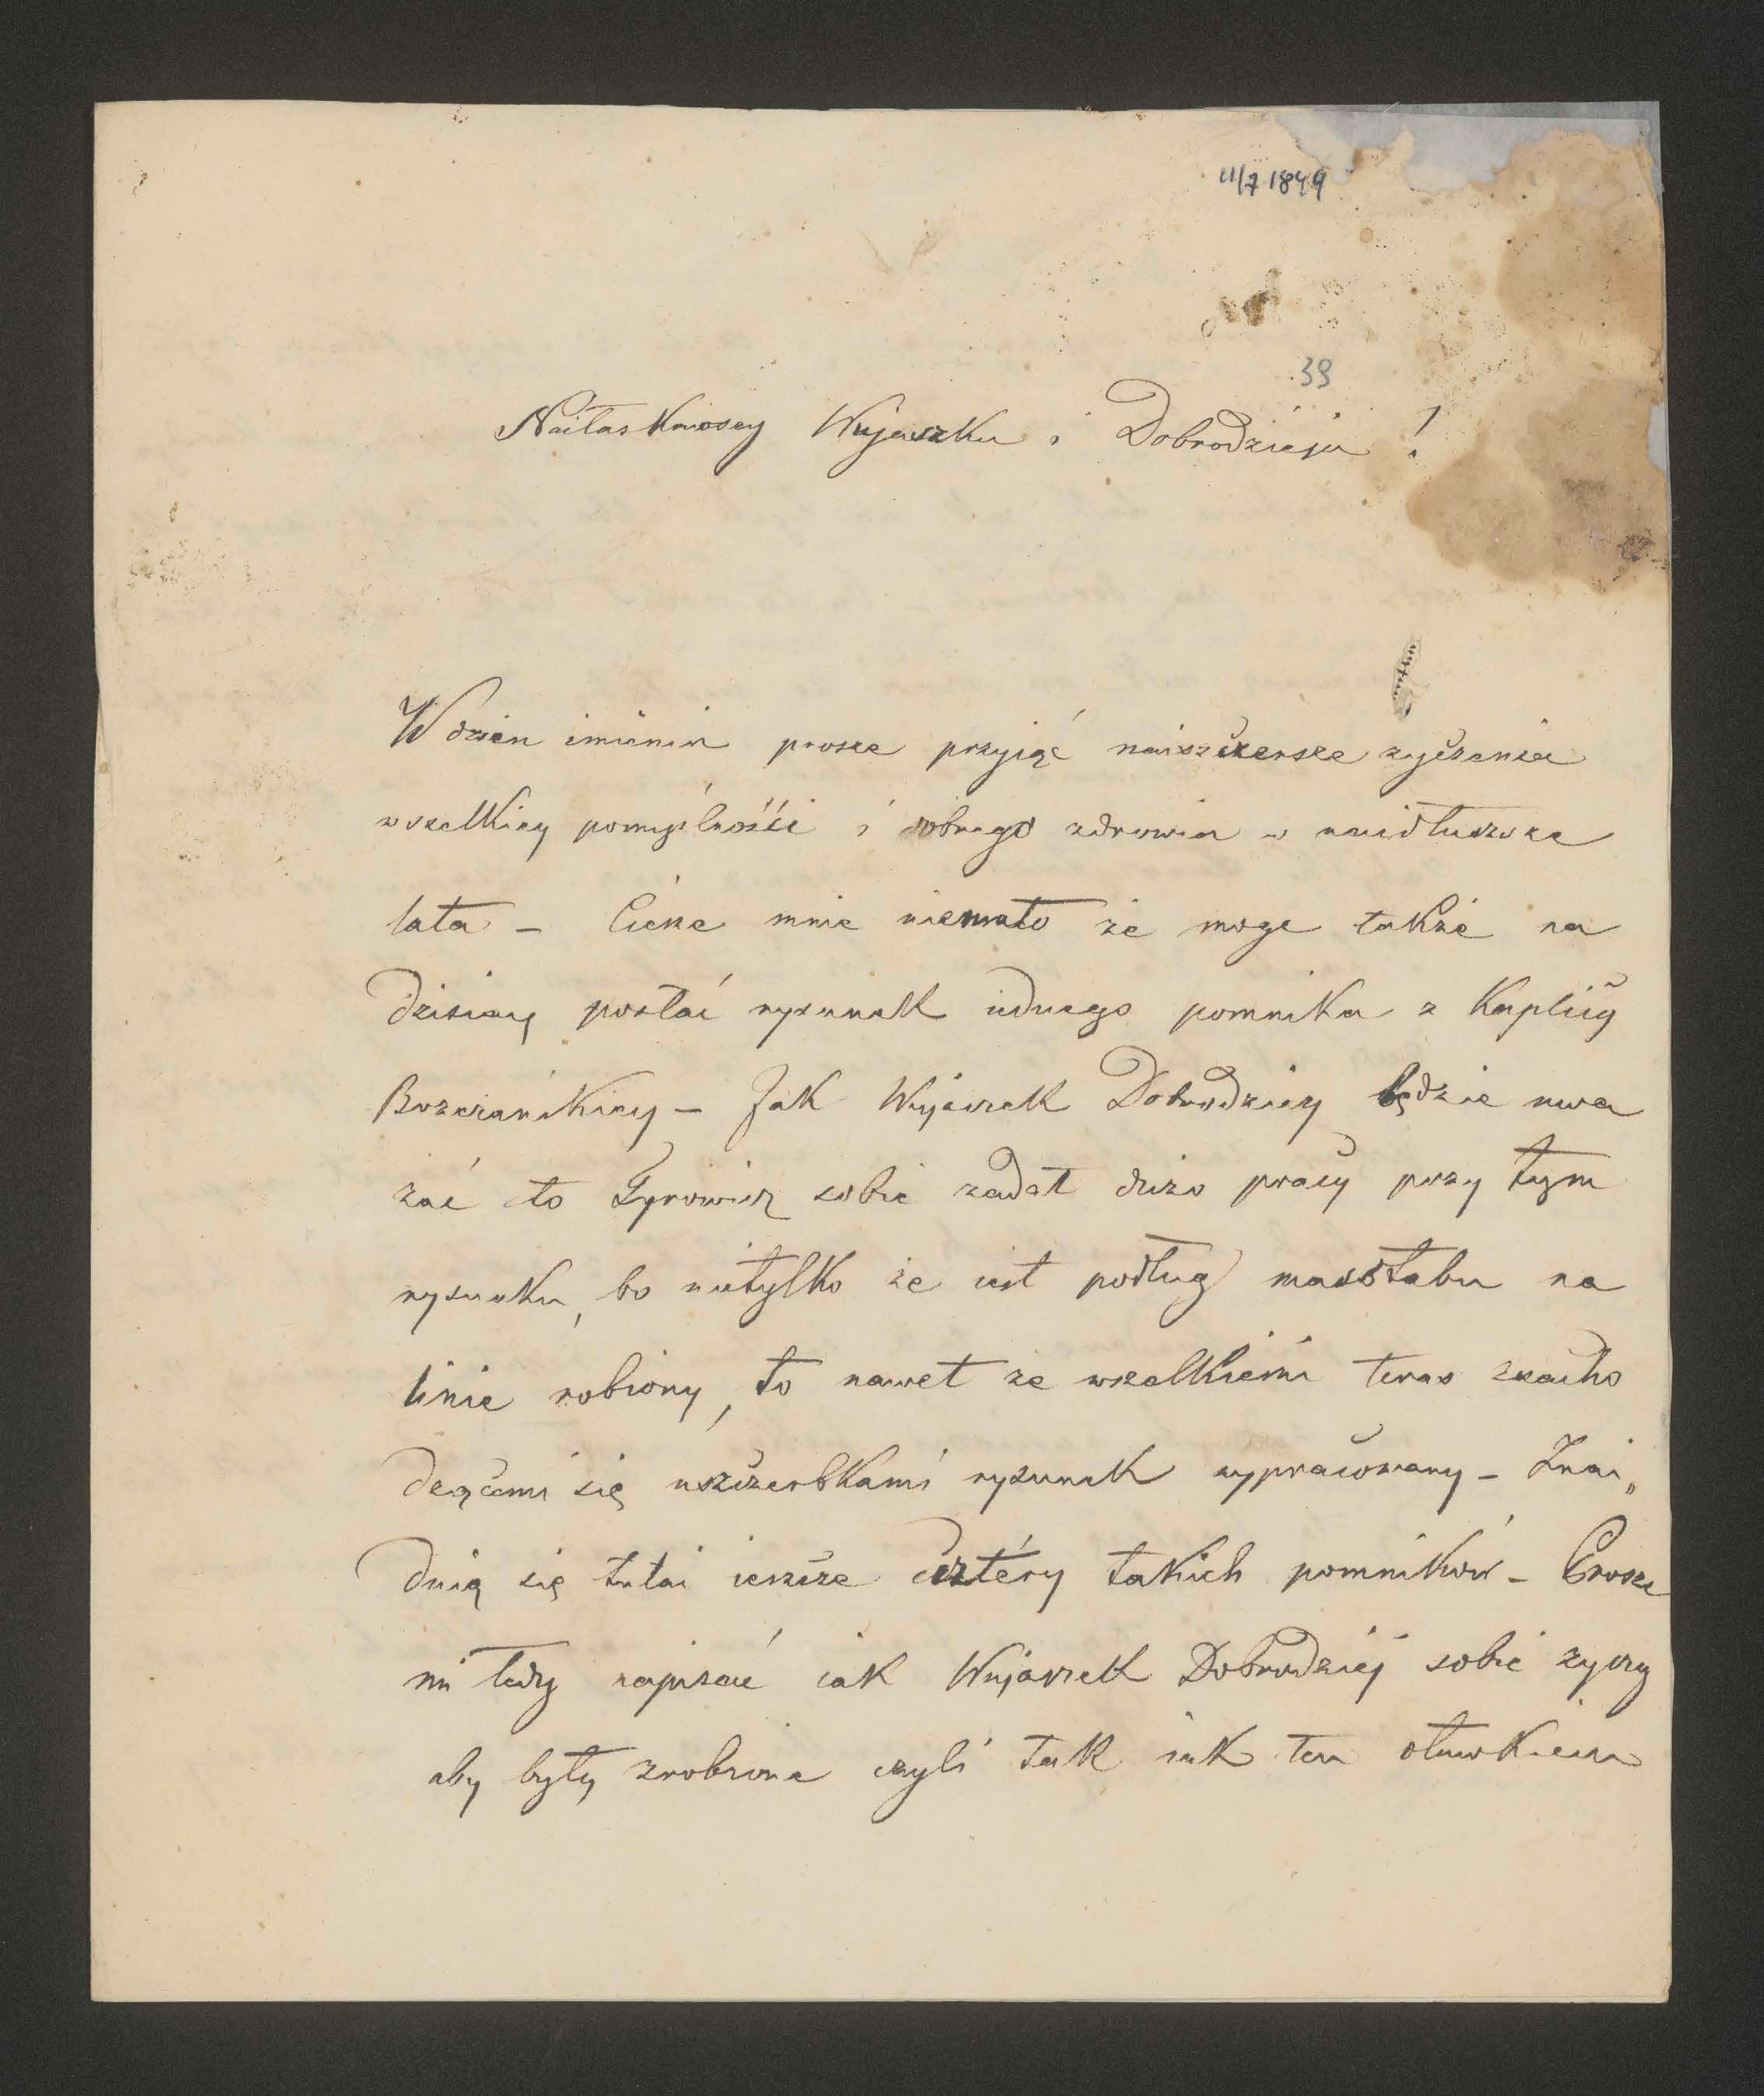 11/7 1849
39
Naiłaskawszy Wujaszku i Dobrodzieju !
W dzien imienin prosze przyiąć naiszczersze zyczenia
wszelkiey pomyślności i dobrego zdrowia w naidłuzsze
lata – Cieszę mnie niemało że moge także na
dzisiaj posłać rysunek iednego pomnika z Kaplicy
Brzezańskiey – Jak Wujaszek Dobrodziey będzie uwa
zać to Tyrowicz sobie zadał dużo pracy przy tym
rysunku, bo nietylko że iest podług masstabu na
linie robiony, to nawet ze wszelkiemi teras znacho
dzącemi się uszczerbkami rysunek wypracowany – Znai„
duią się tutai ieszcze cztéry takich pomników – Prosze
mi tedy napisać iak Wujaszek Dobrodziéj sobie zyczy
aby były zrobione czyli tak iak ten ołuwkiem